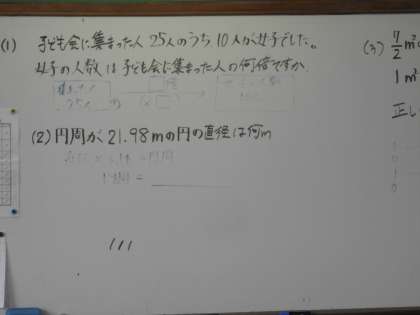 (1) 子ども会に集まった人25人のうち10人が女子でした。
女子の人数は子ども会に集まった人の何倍ですか
25人
(×□)
(2) 円周が21.98mの円の直径は何m
=円周
=
(3) 7/2 m²
1m²
正し